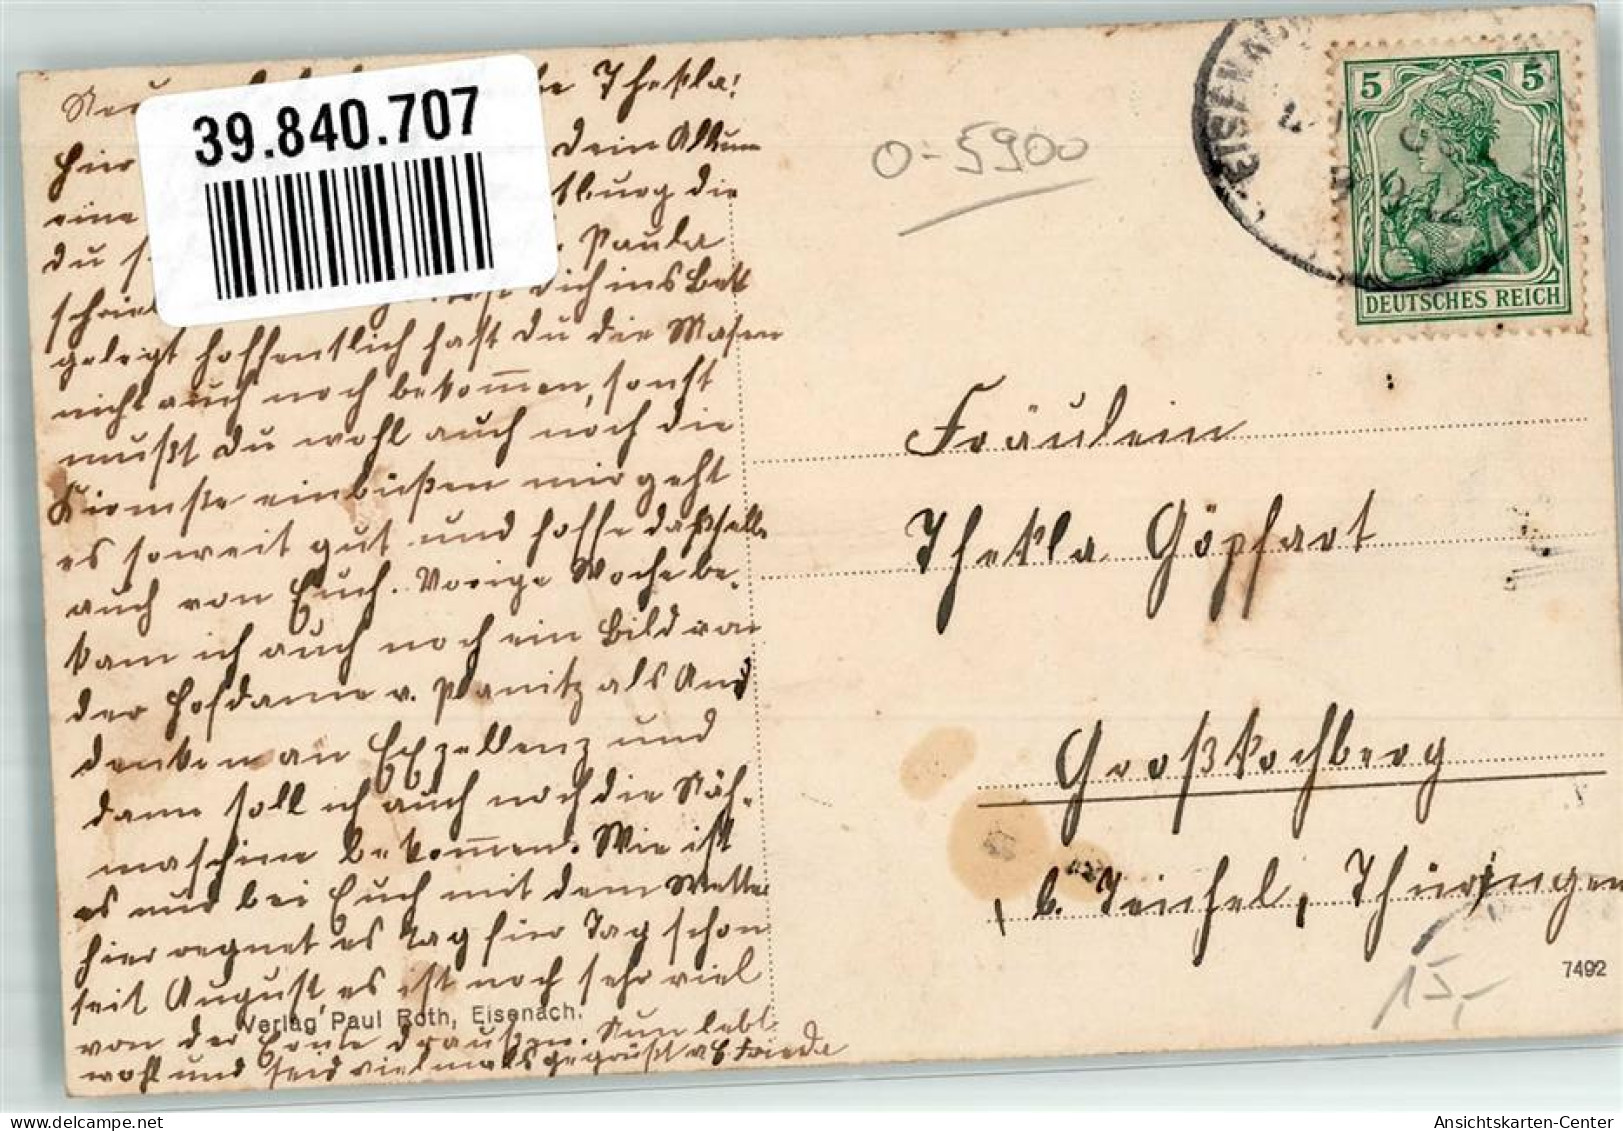 39.840.707
Thekla!
Hier dein Album
eine burg die
du Paula
dich ins Bett
gelegt hoffentlich hast du die Masern
nicht auch noch bekommen, sonst
mußt du wohl auch noch die
Kirmße einbüßen mir geht
es soweit gut und hoffe daßselbe
auch von Euch. Vorige Woche be-
kam ich auch noch ein Bild von
der Hofdame v. Planitz als An
denken an Exzellenz und
dann soll ich auch noch die Näh-
maschine bekommen. Wie ist
es nur bei Euch mit dem Wetter
hier regnet es Tag für Tag schon
seit August, es ist noch sehr viel
von der Ernte draußen. Nun lebt
wohl und seid vielmals gegrüßt v. E. Frieda
Verlag Paul Roth, Eisenach.
0-5900
EISENACH
5 5
DEUTSCHES REICH
Fräulein
Thekla Göpfart
Großkochberg
b. Teichel, Thüringen
7492
15,-
Ansichtskarten-Center